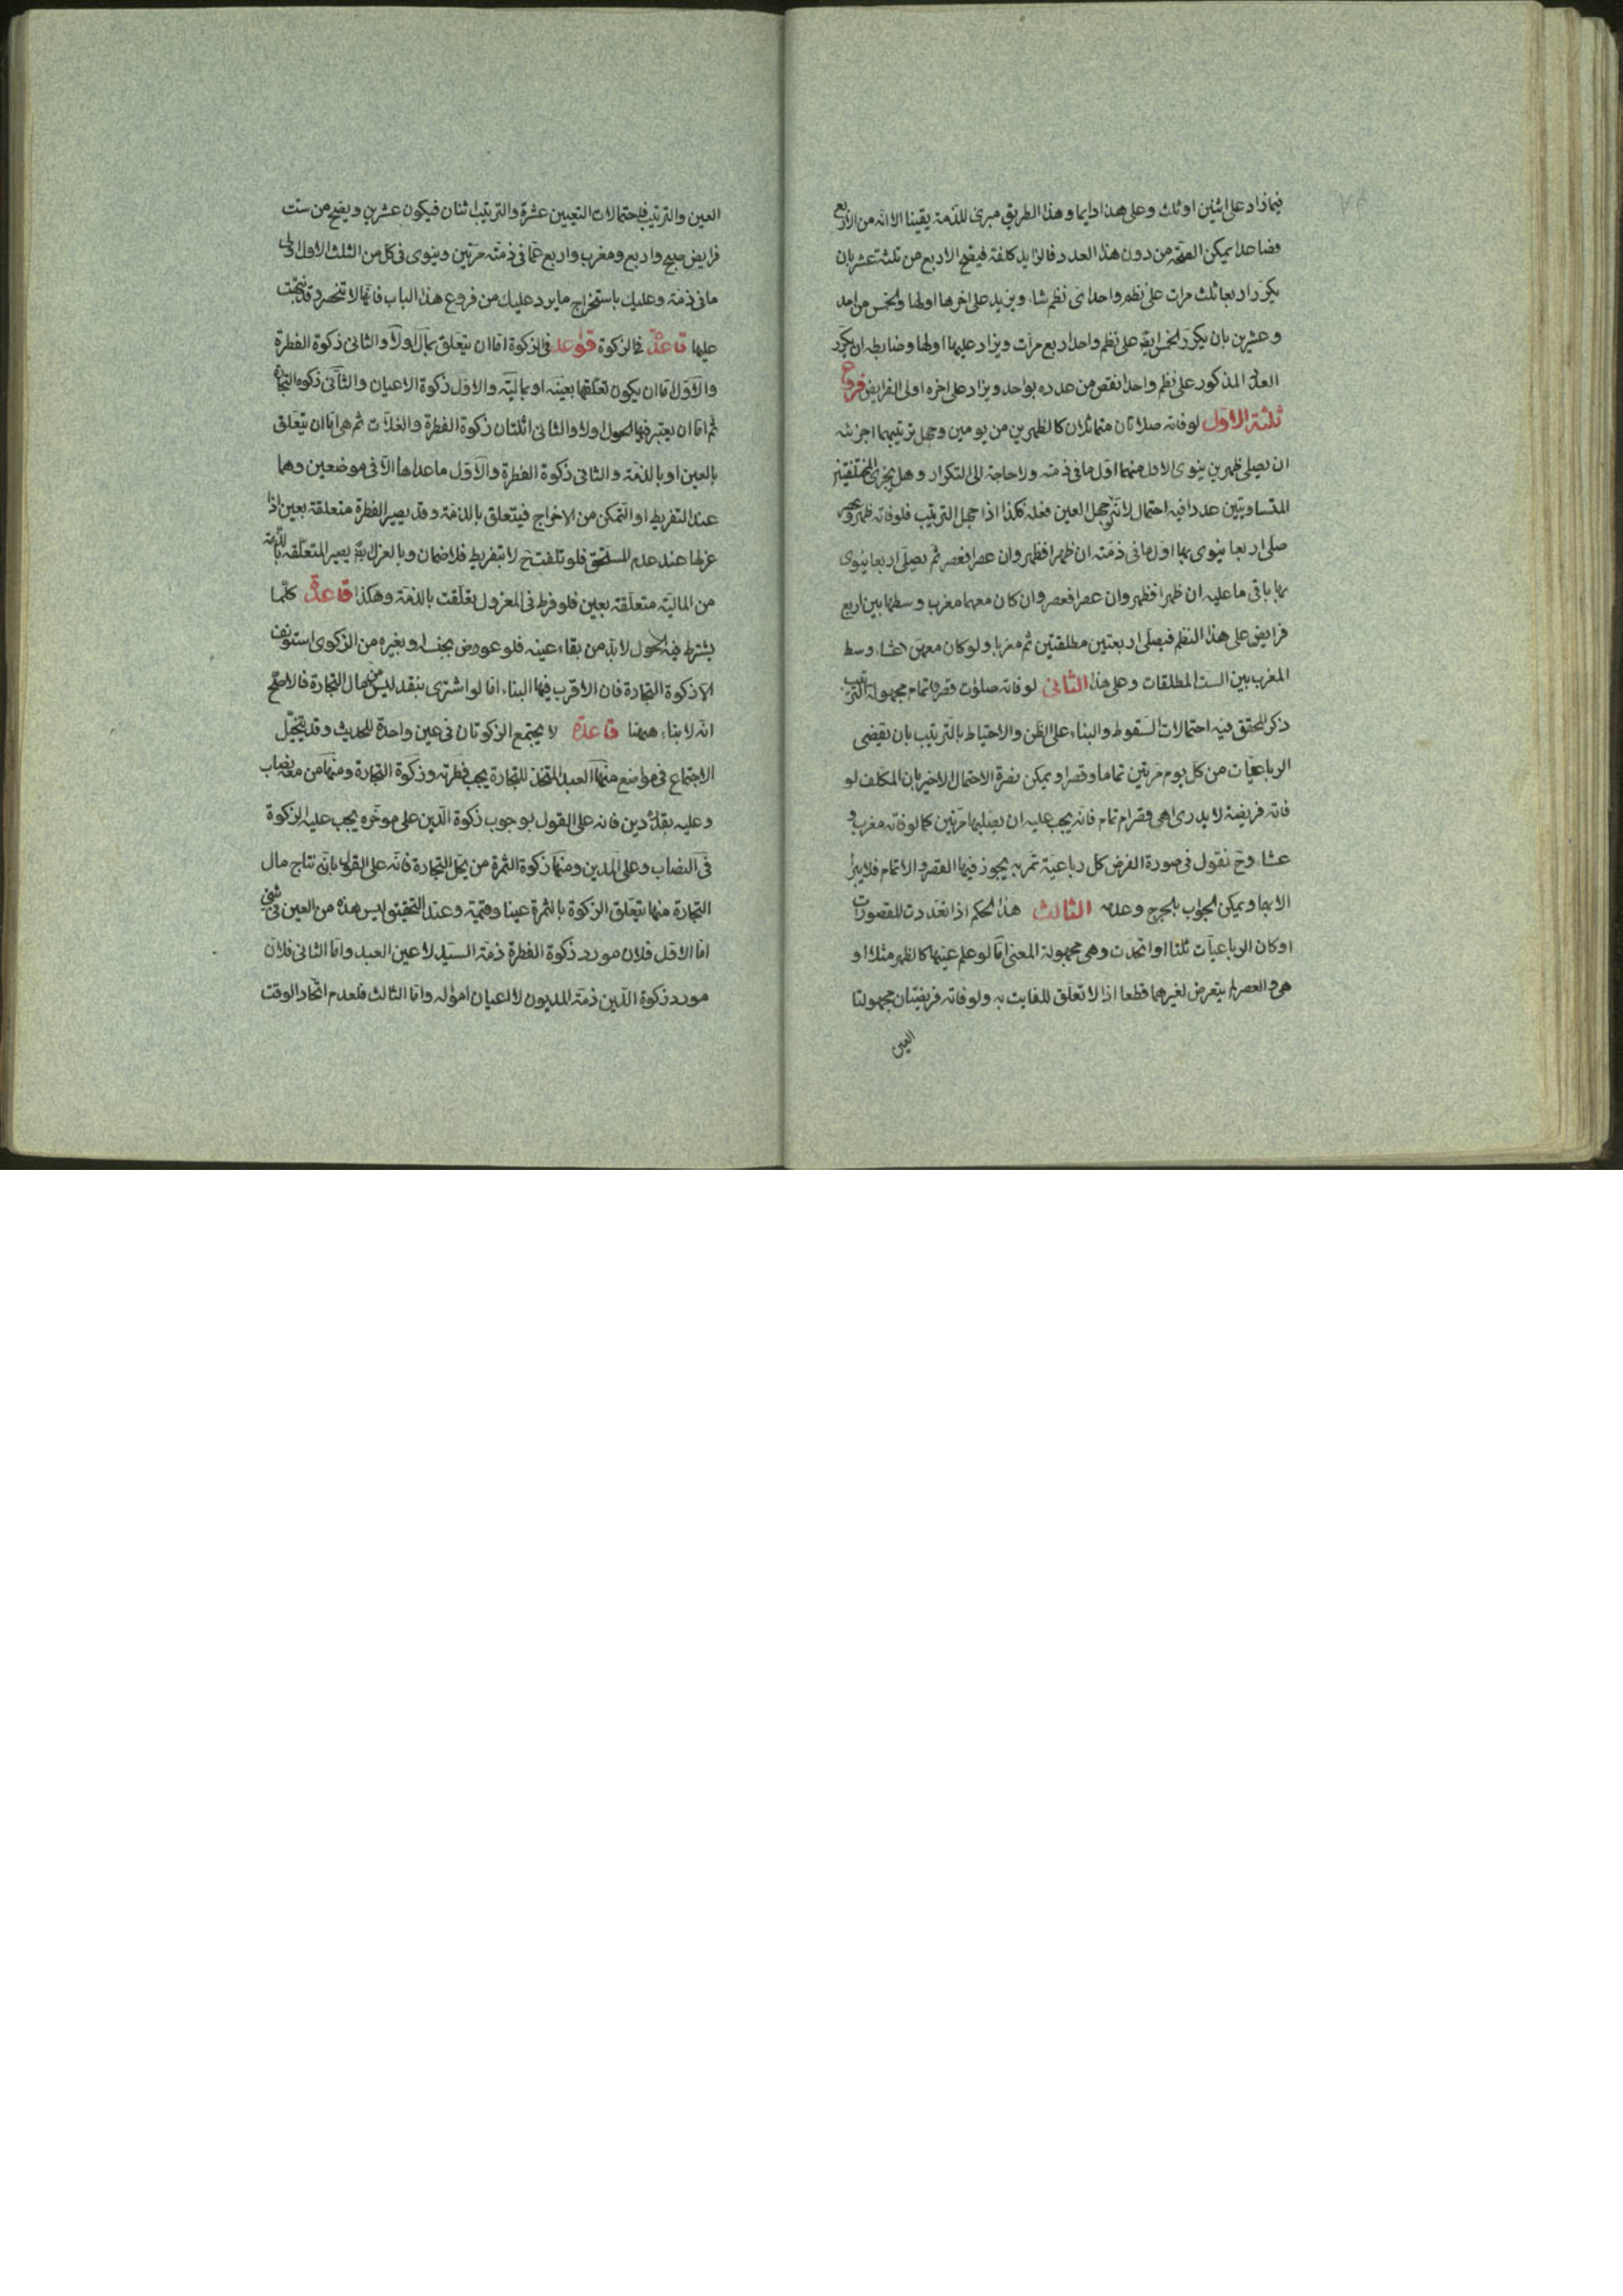 فيما زاد على اثنين او ثلث وعلى هذا دايما وهذا الطريق مبرئ للذمة يقينا الا انه من الاربع
فصاعدا يمكن الصحة من دون هذا العدد فالزايد كلفة فيصح الاربع من ثلثة عشر بان
يكرر اربعا ثلث مرات على نظم واحد اى نظم شاء ويزيد على اخرها اولها والخمس من احد
وعشرين بان يكرر الخمس ايضا على نظم واحد اربع مرات ويزاد عليها اولها وضابطه ان يكرر
العدد المذكور على نظم واحد انقص من عدده بواحد ويزاد على اخره اولى الفرايض فروع
ثلثة الاول لو فاته صلاتان متماثلتان كالظهرين من يومين وجهل ترتيبهما اجزئه
ان يصلى ظهرين ينوى الاول منهما اول ما فى ذمته ولا حاجة الى التكرار وهل يجزى المختلفتين
المتساويتين عددا فيه احتمال لانه لو جهل العين فعله فكذا اذا جهل الترتيب فلو فاته ظهر وعصر
صلى اربعا ينوى بها اول ما فى ذمته ان ظهرا فظهر وان عصرا فعصر ثم يصلى اربعا ينوى
بها باقى ما عليه ان ظهرا فظهر وان عصرا فعصر وان كان معهما مغرب وسطها بين اربع
فرايض على هذا النظم فيصلى اربعتين مطلقتين ثم مغربا ولو كان معهن عشاء وسط
المغرب بين الست المطلقات وعلى هذا الثانى لو فاته صلوت قصر وتمام مجهولة الترتيب
ذكر المحقق فيه احتمالات السقوط والبناء على الظن والاحتياط بالترتيب بان يقضى
الرباعيات من كل يوم مرتين تماما وقصرا ويمكن نصرة الاحتمال الاخير بان المكلف لو
فاته فريضة لا يدرى اهى قصر ام تمام فانه يجب عليه ان يصليها مرتين كما لو فاته مغرب و
عشاء وح نقول فى صورة الفرض كل رباعية تمر به يجوز فيها القصر والاتمام فلا يبرأ
الا بها ويمكن الجواب بالحرج وعدمه الثالث هذا الحكم اذا تعددت المقصورات
او كان الرباعيات ثلثا او اتحدت وهى مجهولة المعنى اما لو علم عينها كالظهر مثلا او
هى والعصر لم يتعرض لغيرهما قطعا اذ لا تعلق للفايت به ولو فاته فريضتان مجهولتا
العين
العين والترتيب فاحتمالات التعيين عشرة والترتيب اثنان فيكون عشرين ويصح من ست
فرايض صبح واربع ومغرب واربع عما فى ذمته مرتين وينوى فى كل من الثلث الاول اولى
ما فى ذمته وعليك باستخراج ما يرد عليك من فروع هذا الباب فانها لا تنحصر وقد نبهت
عليها قاعدة فى الزكوة قواعد فى الزكوة اما ان يتعلق بمال اولا والثانى زكوة الفطرة
والاول اما ان يكون تعلقها بعينه او بماليته والاول زكوة الاعيان والثانى زكوة التجارة
ثم اما ان يعتبر فيها الحول اولا والثانى اثنتان زكوة الفطرة والغلات ثم هى اما ان يتعلق
بالعين او بالذمة والثانى زكوة الفطرة والاول ما عداها الا فى موضعين وهما
عند التفريط او التمكن من الاخراج فيتعلق بالذمة وقد يصير الفطرة متعلقة بعين اذا
عزلها عند عدم المستحق فلو تلفت ح لا بتفريط فلا ضمان وبالعزل يصير المتعلقة بالذمة
من المالية متعلقة بعين فلو فرط فى المعزول تعلقت بالذمة وهكذا قاعدة كلما
يشترط فيه الحول لا بد من بقاء عينه فلو عوض بجنسه او بغيره من الزكوى استونف
الا زكوة التجارة فان الاقرب فيها البناء اما لو اشترى بنقد ليس من مال التجارة فالاصح
انه لا بناء ههنا قاعدة لا يجتمع الزكوتان فى عين واحدة للحديث وقد يتخيل
الاجتماع فى مواضع منها العبد المتخذ للتجارة يجب فطرته وزكوة التجارة ومنها من معه نصاب
وعليه بقدره دين فانه على القول بوجوب زكوة الدين على موخره يجب عليه الزكوة
فى النصاب وعلى المدين ومنها زكوة الثمرة من نخل التجارة فانه على القول بانه نتاج مال
التجارة منها يتعلق الزكوة بالثمرة عينا وقيمة وعند التحقيق ليس هذه من العين فى شئ
اما الاول فلان مورد زكوة الفطرة ذمة السيد لا عين العبد واما الثانى فلان
مورد زكوة الدين ذمة المديون لا اعيان امواله واما الثالث فلعدم اتحاد الوقت